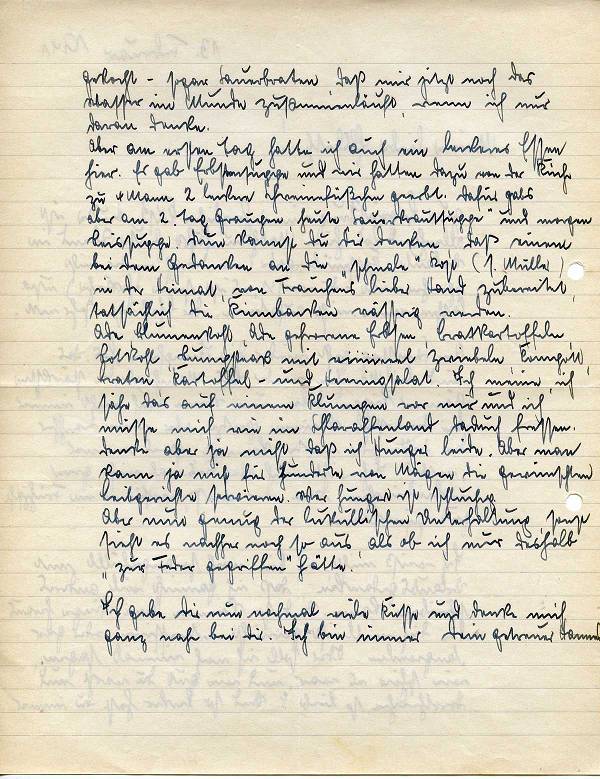 gekocht - sogar Sauerbraten daß mir jetzt noch das
Wasser im Munde zusammenläuft, wenn ich nur
daran denke.
Aber am ersten Tag hatte ich auch ein leckeres Essen
hier. Es gab Erbsensuppe und wir hatten dazu von der Küche
zu 4 Mann 2 leckere Schweinefüßchen geerbt. Dafür gabs
aber am 2. Tag Graupen, heute Sauerkraussuppe" und morgen
Reissuppe. Nun kannst du dir denken, daß einem
bei dem Gedanken an die „schmale" Kost (s. Müller)
in der Heimat, von Frauchens lieber Hand zubereitet,
tatsächlich die Kinnbacken wässrig werden.
Ade Blumenkohl, Ade gefrorene Erbsen, Bratkartoffeln
Rotkohl, Rumpsteak mit Zwiebeln
braten Kartoffel- und Heringsalat. Ich meine, ich
sähe das auf einem Klumpen vor mir und ich
müsse mich wie im Schlaraffenland dadurch fressen.
Denke aber ja nicht daß ich Hunger leide. Aber man
kann ja nicht für Hunderte von Mägen die gewünschten
Leibgerichte servieren. Wer hungert ist
Aber nun genug der lukullischen Unterhaltung, sonst
sieht es nachher noch so aus, als ob ich nur deshalb
„zur Feder gegriffen" hätte.
Ich gebe Dir nun nochmal viele Küsse und denke mich
ganz nahe bei dir. Ich bin immer Dein getreuer